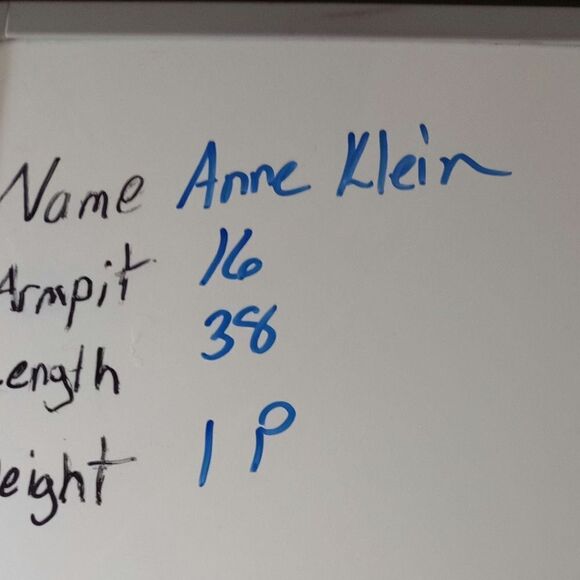 Name Anne Klein
Armpit 16
Length 38
eight 1 P